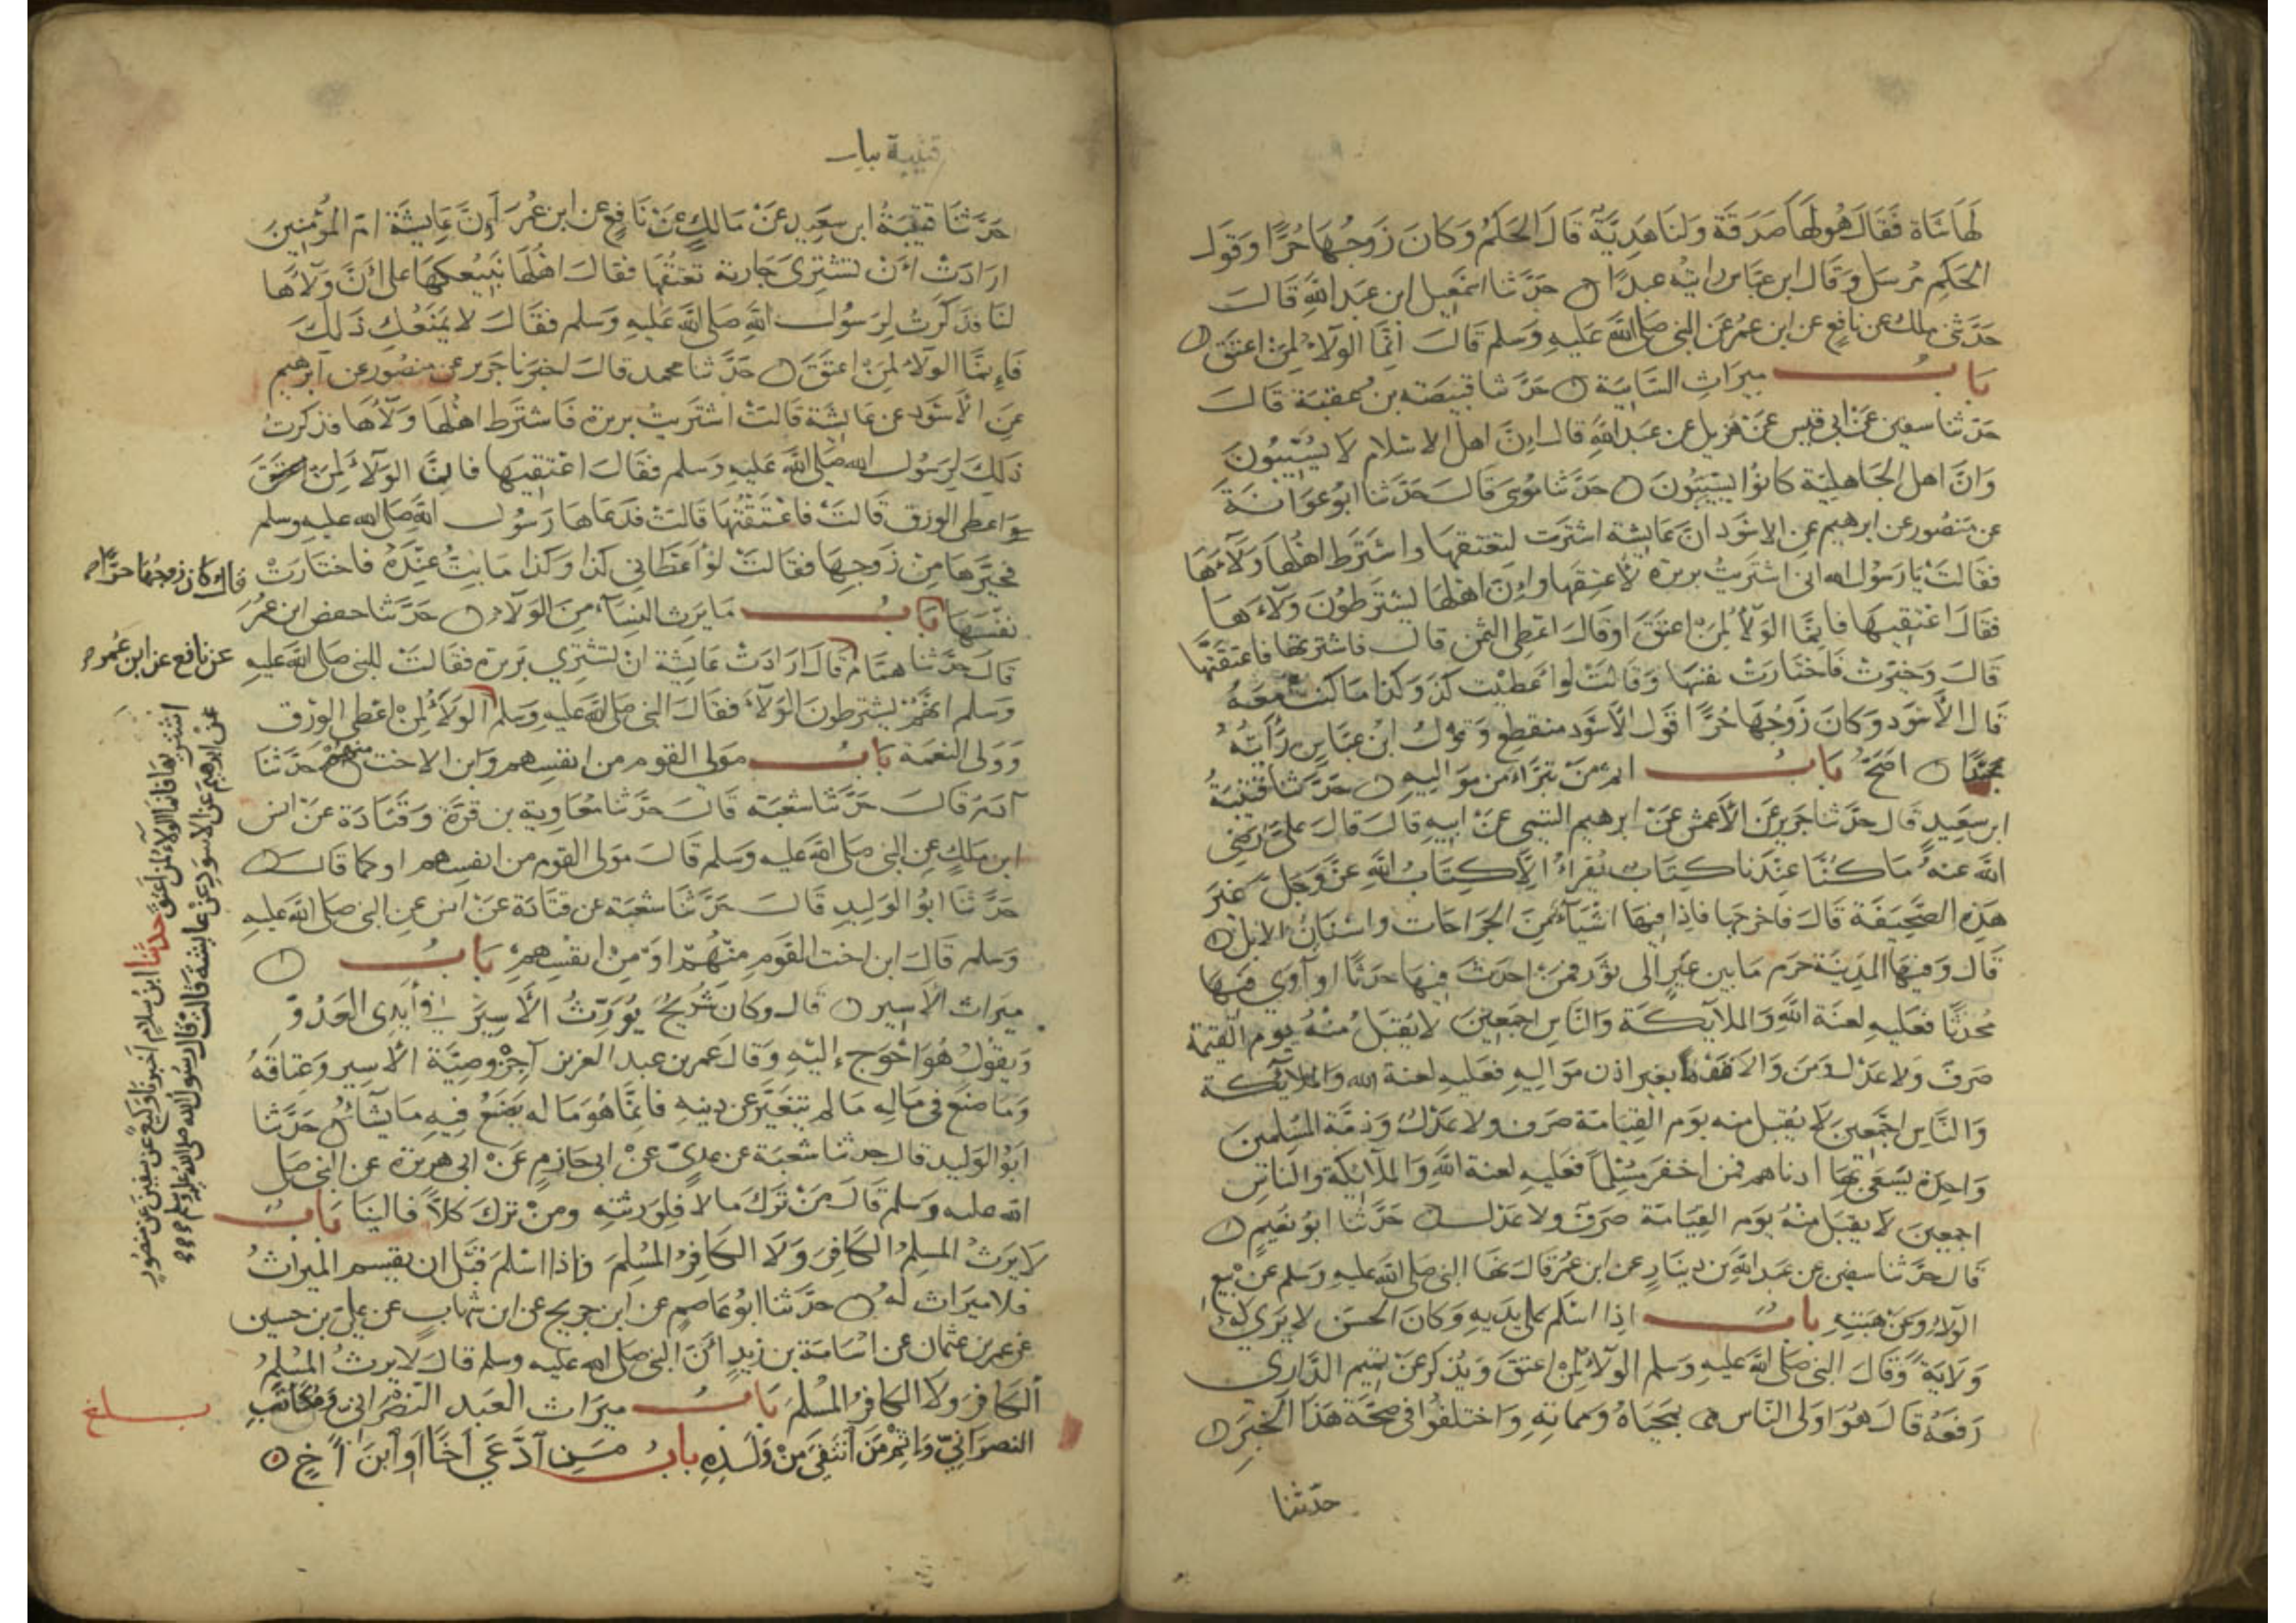 لَهَا شَاة فَقَالَ هُو لَهَا صَدَقَة وَلنَا هَدِيَّةٌ قَالَ الحَكَمُ وَكَانَ زَوجُهَا حُرًّا وَقَولُ
الحَكِم مُرسَل وَقَالَ ابن عبَّاس رايتُه عبدًا حَدَّثَنا اسمَعِيل ابن عَبد اللَّهِ قَالَ
حَدَّثني ملك عن نافعٍ عن ابن عمُر عَن النبي صَلى اللَّه عَليهِ وَسَلم قَالَ انَّمَا الوَلآءُ لِمَنْ اعتَق
بَابُ ميرَاثِ السَّايبَة حَدَّثنا قبيصَة بن عُقبَة قَالَ
حَدّثنا سفين عَنْ ابي قيسٍ عَنْ هُزيل عن عَبدِ اللَّهِ قال اِنَّ اهل الاسلام لاَ يُسَيّبُونَ
وَانَّ اهل الجَاهليَّة كانوُا يسَيّبُونَ حَدَّثنا مُوسَى قَالَ حَدَّثنا ابُو عَوَانَةَ
عن مَنصُور عن ابرهيم عن الاسْوَد انَّ عَايشة اشترت لتعتقهَا واشتَرَط اهْلُهَا وَلآءَهَا
فقَالَتْ يَا رَسُول الله اني اشتَريتُ بريرَة لأُعتِقَها واِنَّ اهْلهَا يشترطوُنَ وَلآءَهَا
فقَالَ اعْتقِيهَا فانمَّا الوَلآُ لمِنْ اعتقَ اوقَالَ اعْطِي الثمن قال فاشترتهَا فاعتقَتْهَا
قَالَ وَخُيّرَتْ فَاختَارَتْ نفسَهَا وَقالَتْ لو اعْطيْت كذَ وَكذا مَا كنت مَعَهُ
قَال الأَسْوَد وَكانَ زَوجُهَا حُرًّا قَول الأسْوَد منقطِع وَقولُ ابْن عبَّاسٍ رَأَيْتُهُ
عَبْدًا اصَحُّ بَابُ اثم مَنْ تبَرَّأ من مَوَاليِهِ حَدَّثنا قُتيبَةُ
ابن سعَيِدٍ قَال حدَّثنا جَرير عَن الأعمشِ عَنْ ابرهيم التيمي عَنْ ابيهِ قالَ قَالَ عليٌّ رَضِيَ
اللَّه عَنهُ مَا كُنَّا عِنْدَنا كتَابٌ نقرَاءُ الاَّ كِتَابُ اللَّهِ عَزَّ وَجَلّ غيرَ
هَذِهِ الصَّحِيفَة قَالَ فاخرجَها فَاِذَا فيهَا اشيَآءُ مِنَ الجرَاحَات واسْنَانِ الابل
قَال وَفيهَا المَدِيَنة حَرَم مَا بين عَيْرٍ الى ثوَر فمَنْ احدَثَ فيهَا حَدثًا او آوَى فيهَا
مُحدثًا فعَليهِ لعنَة اللَّهِ وَالملآيكَة وَالنَّاسِ اجمَعِينَ لا يُقبَلُ مِنْهُ يوم القيمة
صَرفٌ ولا عَدْل وَمَن والا قومًا بغير اذن مَوَاليهِ فعَليهِ لعنة الله وَالملآيكة
وَالنَّاسِ اجْمَعِينَ لاَ يُقبل منه يَوم القِيَامَة صَرف ولا عَدْلُ وَذِمَّة المُسْلمينَ
وَاحِدَة يَسْعَى بهَا ادناهم فمن اخفَر مسْلِماً فعَليهِ لعنة اللَّهِ وَالملآئكة والنَّاسِ
اجمعينَ لاَ يُقبَلُ مِنْهُ يَوم القِيَامَة صَرفٌ ولا عَدْل حَدَّثنا ابُو نُعَيمٍ
قَال حَدَّثنا سفين عن عَبد اللَّه بن دِينَارٍ عن ابن عمُر قَالَ نهَا النبي صَلى اللَّه عليه وَسَلم عن بيع
الوَلآءِ وَعَنْ هِبَتِهِ بابُ اِذا اسْلم على يَديهِ وَكانَ الحسَن لا يَرى لهُ
وَلاَيَةً وَقَالَ النبي صَلى اللَّه عليهِ وَسَلم الوَلآءُ لِمنْ اعتقَ وَيُذكر عَنْ تميم الدَّاري
رَفعَهُ قَالَ هُوَ اولى النَّاس بمحيَاهُ ومماتِهِ وَاختلفوُا في صحَّة هَذَا الخَبَر
حدّثنا
قتيبة ببا
حَدَّثنَا قتيبَةُ ابن سعَيدٍ عَنْ مَالكٍ عَنْ نَافِعٍ عن ابن عمُرَ اَنَّ عَايشَة امّ المُؤْمِنِينَ
ارَادَتْ انْ تشتَرِيَ جَاريَة تعتقُها فقَالَ اهْلُهَا نَبيُعكهَا على أنَّ وَلآءَها
لنَا فذكَرَتْ لرَسُول اللَّهِ صَلى اللَّه عَليِهِ وَسَلم فقَالَ لا يمَنَعُكِ ذَلكَ
فَاِنمَّا الوَلآءُ لمِنْ اعتَقَ حَدَّثنا محمد قالَ اخبَرنا جَرير عن منصُور عن ابرهيم
عَنِ الأَسْوَد عن عَايشَة قَالتْ اشتَريتُ بريرَة فاشتَرط اهْلهَا وَلآءُهَا فذكرتُ
ذَلِكَ لِرَسُول الله صَلى اللَّه عَليهِ وَسَلم فقَالَ اعْتِقِيهَا فانَّ الوَلآءَ لِمَنْ
اعطى الوَرِق قَالتْ فاعْتَقْتُهَا قَالتْ فدَعَاهَا رَسُول اللهِ صَلى الله عليهِ وسلم
فخيَّرهَا مِنْ زَوجِهَا فقَالتْ لوْ اَعْطَاني كذا وَكذا مَا بتُّ عِنْدَهُ فاختارَتْ
قال كان زوجُهَا حرًّا
نفسَهَا بَابُ مَا يَرِث النِسَآء مِنَ الوَلآءِ حَدَّثنا حفص ابن عمُر
قَالَ حَدَّثنا همَّام قَالَ ارَادَتْ عَايشَة انْ تشتَري بَريرَة فقَالتْ للنبي صَلى اللَّه عَليهِ
عن نافع عن ابن عُمر
وَسَلم انهُّمْ يشترطون الوَلآءَ فقَالَ النبي صَلى اللَّه عَليهِ وَسَلم الوَلآءُ لِمنْ اعْطى الوَرق
وَوَلى النعمَة بَابُ مَولى القَوم من انفسِهم وَابن الاخت منهم حَدّثنا
آدَمُ قَالَ حَدَّثنا شعْبَة قَالَ حَدَّثنا مُعَاوِية بن قرَّة وَقتَادَة عَنْ انس
ابن مَلكٍ عن النبي صَلى اللَّه عَليه وَسَلم قَالَ مَولى القَوم من انفسِهم او كما قَالَ
حَدَّثنا ابوُ الوَليدِ قَالَ حَدَّثنا شعْبَة عن قتادَة عَنْ انس عن النبي صَلى اللَّه عَليهِ
وَسَلم قَالَ ابن اخت القَوم مِنْهُمْ اوَ مِنْ انفسِهِمْ بَابُ
ميرَاث الاَسِير قَال وكان شُرَيحٌ يُوَرِّثُ الاَسِيرَ في أيَدِى العَدُوِّ
وَيقُولُ هُوَ احْوَج اِليْهِ وَقَالَ عمَر بن عبد العزيز آجِزْ وصيَّة الأَسير وَعتاقَهُ
وَمَا صَنَع في مَالِهِ مَا لم يتغَيَّر عن دِينِهِ فانمَّا هُوَ مَا له يَصنَعُ فيِهِ مَا يَشَاءُ حَدَّثنا
ابَوُ الوَليد قَال حدثنا شعْبَة عن عَديّ عَنْ ابي حَازمٍ عَنْ ابي هُريرَة عن النبي صَلى
الله عليه وسَلم قَالَ مَنْ تَرَكَ مَالا فلِوَرثتِهِ ومنْ ترَكَ كلاًّ فالينَا بَابُ
لا يَرِثُ المسلِمُ الكَافِرَ وَلاَ الكَافِرُ المُسْلِمَ وَاِذا اسْلَم قبْل ان يقسم الميرَاثُ
فلا ميرَاث لهُ حَدَّثنا ابُو عَاصِمٍ عن ابن جرَيجٍ عن ابن شهَابٍ عن عَليّ بن حسين
عن عمر بن عثمان عن اسَامَة بن زيدٍ انَّ النبي صَلى الله عليه وسلم قالَ لا يرثُ المسْلمُ
الكَافِرَ وَلا الكَافِرُ المُسْلِمَ بَابُ ميرَاث العَبد النَّصْرَاني وَمُكَاتَبِ
النصَرَانِيّ وَاِثم مَن انْتَفىَ مِنْ وَلَدِهِ بابُ مَنِ ادَّعَى اخَاً اوَ ابْنَ اَخٍ
بلغ
اشتريهَا فانمَا الوَلآءُ لمن اعتق حدثنا ابن سلامٍ اخبرنا وكيعٌ عن سفين عن منصورٍ
عن ابرهيم عن الاسود عن عايشة قالت قال رسول الله صلى الله عليه وسلم